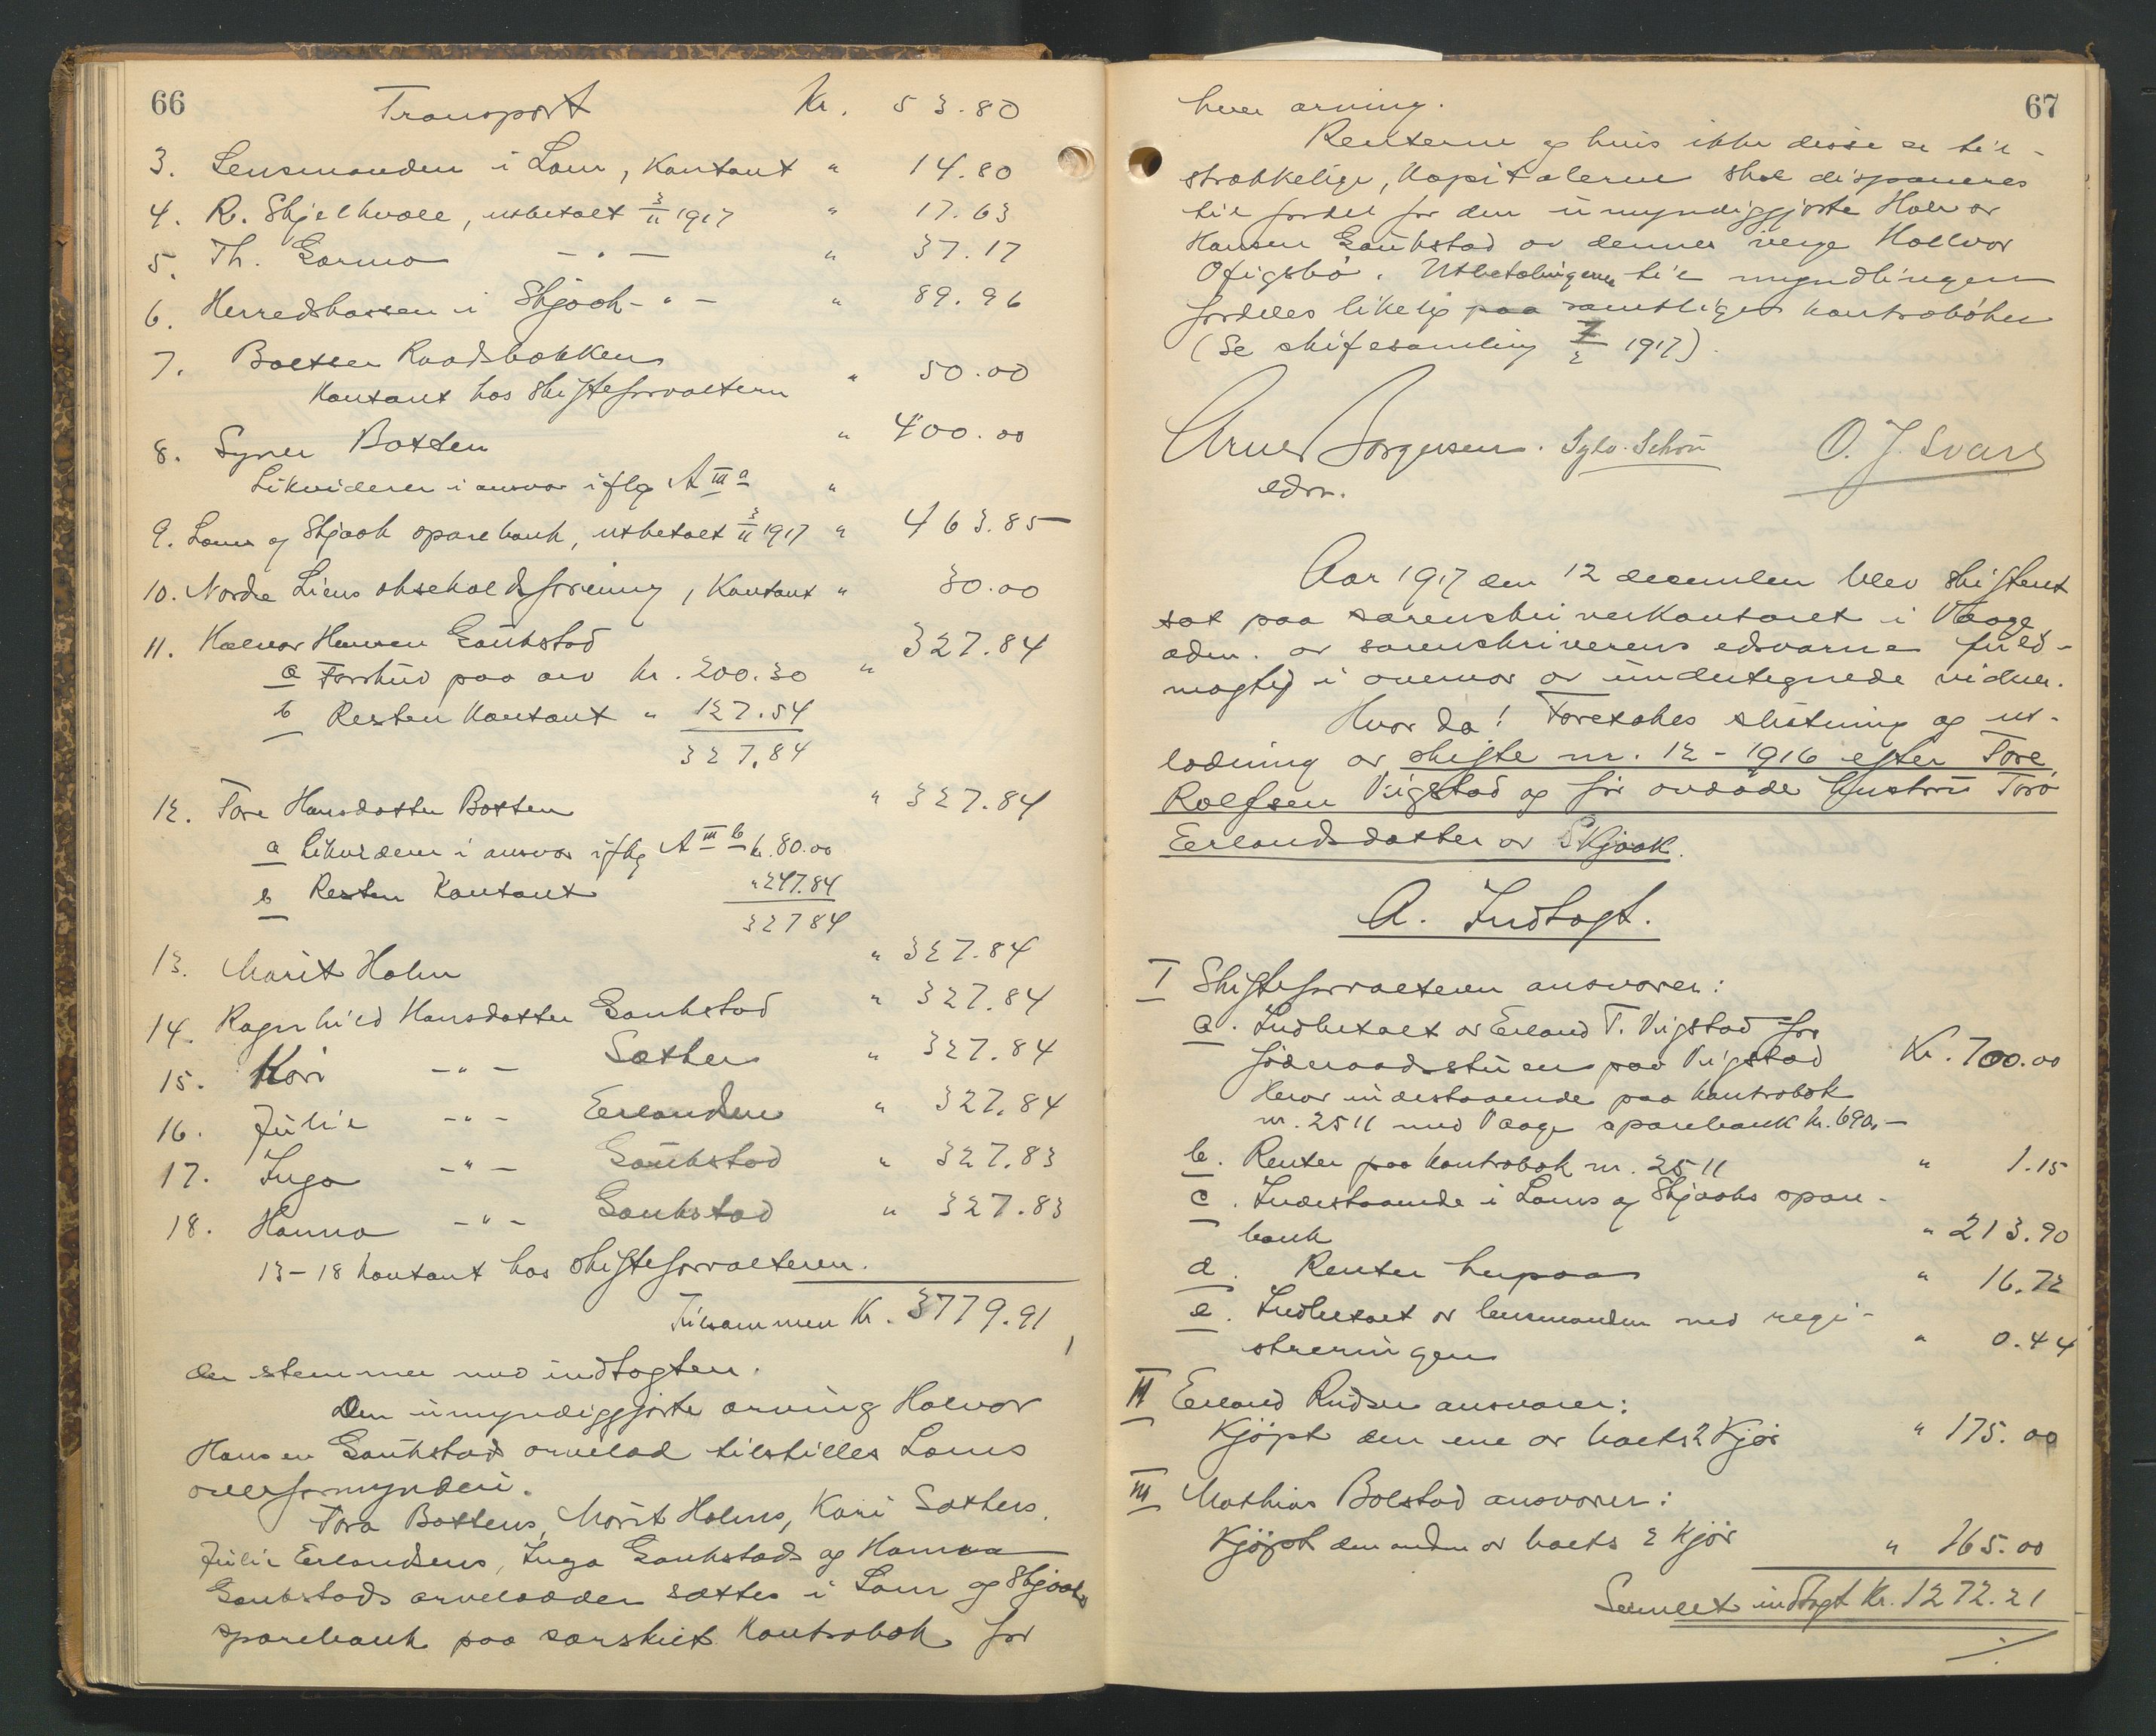 66
Transport Kr. 53.80
3. Lensmanden i Lom, Kontant " 14.80
4. R. Skjelkvale, utbetalt 3/11 1917 " 17.63
5. Th. Garmo - " - " 37.17
6. Herredskassen i Skjaak - " - " 89.96
7. Baltser Raadsbakken
Kontant hos skifteforvalteren " 50.00
8. Syver Botten " 400.00
Likviderer i ansvar iflg A III a "
9. Lom og Skjaak sparebank, utbetalt 3/11 1917 " 463.85
10. Nordre Liens okseholdsforening, Kontant " 30.00
11. Halvor Hansen Gaukstad 327.84
a Forskud paa arv kr. 200.30 "
b Resten Kontant " 127.54
327.84
12. Tore Hansdatter Botten " 327.84
a likviderer i ansvar iflg A III b kr. 80.00
b Resten Kontant " 247.84
327 84
13. Marit Holm " 327.84
14. Ragnhild Hansdatter Gaukstad " 327.84
15. Kari - " - Sæther " 327.84
16. Julie - " - Erlandsen " 327.84
17. Inga - " - Gaukstad " 327.83
18. Hanna - " - Gaukstad " 327.83
13-18 kontant hos skifteforvalteren.
Tilsammen Kr. 3779.91
der stemmer med indtægten.
Den umyndiggjorte arving Halvor
Hansen Gaukstad arvelod tilstilles Loms
overformynderi.
Tora Bottens, Marit Holms, Kari Sæthers,
Julie Erlandsens, Inga Gaukstads og Hanna
Gaukstads arvelodder sættes i Lom og Skjaaks
sparebank paa særskilt kontrabok for
67
hver arving.
Renterne og hvis ikke disse er til-
strækkelige, kapitalerne skal disponeres
til fordel for den umyndiggjorte Halvor
Hansen Gaukstad av dennes verge Hallvor
Ofigsbø. Utbetalingene til myndlingen
fordeles likelig paa samtliges kontrabøker
(Se skiftesamling 7/2 1917).
Arne Jørgensen. Sylv. Schou O. J. Svare
edsv.
Aar 1917 den 12 december blev skifteret
sat paa sorenskriverkontoret i Vaage
adm. av sorenskriverens edsvorne fuld-
mægtig i overvær av undertegnede vidner.
Hvor da! Foretokes slutning og ut-
lodning av skifte nr. 12 - 1916 efter Tore
Rolfsen Vigstad og før avdøde hustru Toro
Erlandsdatter av Skjaak.
A. Indtægt.
I Skifteforvalteren ansvarer:
a. Indbetalt av Erland T. Vigstad for
føderaadsstuen paa Vigstad Kr. 700.00
Herav indestaaende paa kontrabok
nr. 2511 med Vaage sparebank kr. 690,-
b. Renter paa kontrabok nr. 2511 " 1.15
c. Indestaaende i Loms og Skjaaks spare-
bank " 213.90
d. Renter herpaa " 16.72
e. Indbetalt av lensmanden ved regi-
streringen " 0.44
II Erland Rudsen ansvarer:
Kjøpt den ene av boets 2 kjør " 175.00
III Mathias Bolstad ansvarer:
Kjøpt den anden av boets 2 kjør " 165.00
Samlet indtægt Kr. 1272.21